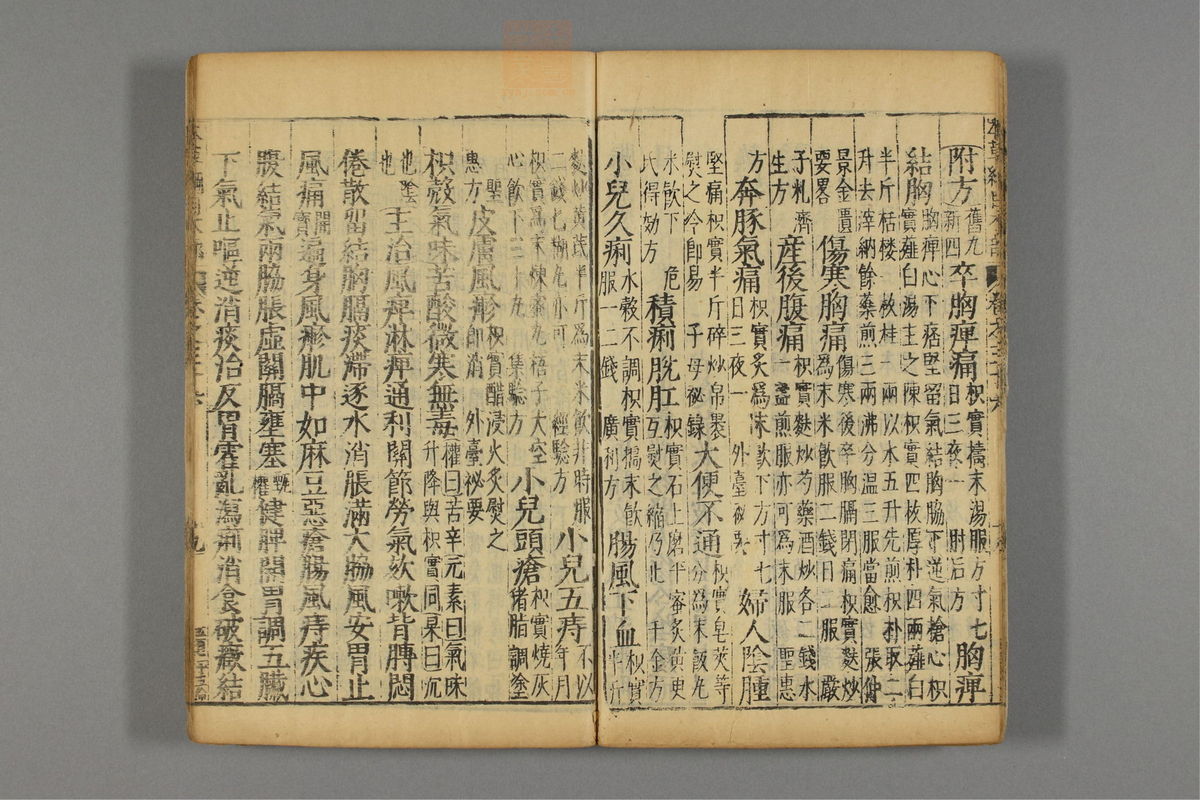 附方舊九新四卒胸痺痛枳實擣末湯服方寸匕日三夜一肘后方胸痺
結胸胸痺心下痞堅留氣結胸脇下逆氣搶心枳實薤白湯主之陳枳實四枚厚朴四兩薤白
半斤栝樓一枚桂一兩以水五升先煎枳朴取二升去滓納餘藥煎三兩沸分溫三服當愈張仲
景金匱要畧傷寒胸痛傷寒後卒胸膈閉痛枳實麩炒爲末米飲服二錢日二服嚴
子礼濟生方産後腹痛枳實麩炒芍藥酒炒各二錢水一盞煎服亦可爲末服聖惠
方奔豚氣痛枳實炙爲末飲下方寸匕日三夜一外臺秘要婦人陰腫
堅痛枳實半斤碎炒帛裹熨之冷即易子母祕錄大便不通枳實皂莢等分爲末飯丸
米飲下危氏得効方積痢脫肛枳實石上磨平蜜炙黃更互熨之縮乃止千金方
小兒久痢水穀不調枳實擣末飲服一二錢廣利方腸風下血枳實半斤
麩炒黃芪半斤爲末米飲非時服二錢匕糊丸亦可經驗方小兒五痔不以年月
枳實爲末煉蜜丸梧子大空心飲下三十丸集驗方小兒頭瘡枳實燒灰猪脂調塗
聖惠方皮膚風疹枳實醋浸火炙熨之即消外臺祕要
枳殼氣味苦酸微寒無毒權曰苦辛元素曰氣味升降與枳實同杲曰沉
也陰也主治風痺淋痺通利關節勞氣欬嗽背膊悶
倦散留結胸膈痰滯逐水消脹滿大腸風安胃止
風痛開寶遍身風疹肌中如麻豆惡瘡腸風痔疾心
腹結氣兩脇脹虛關膈壅塞甄權健脾開胃調五臟
下氣止嘔逆消痰治反胃霍亂瀉痢消食破癥結